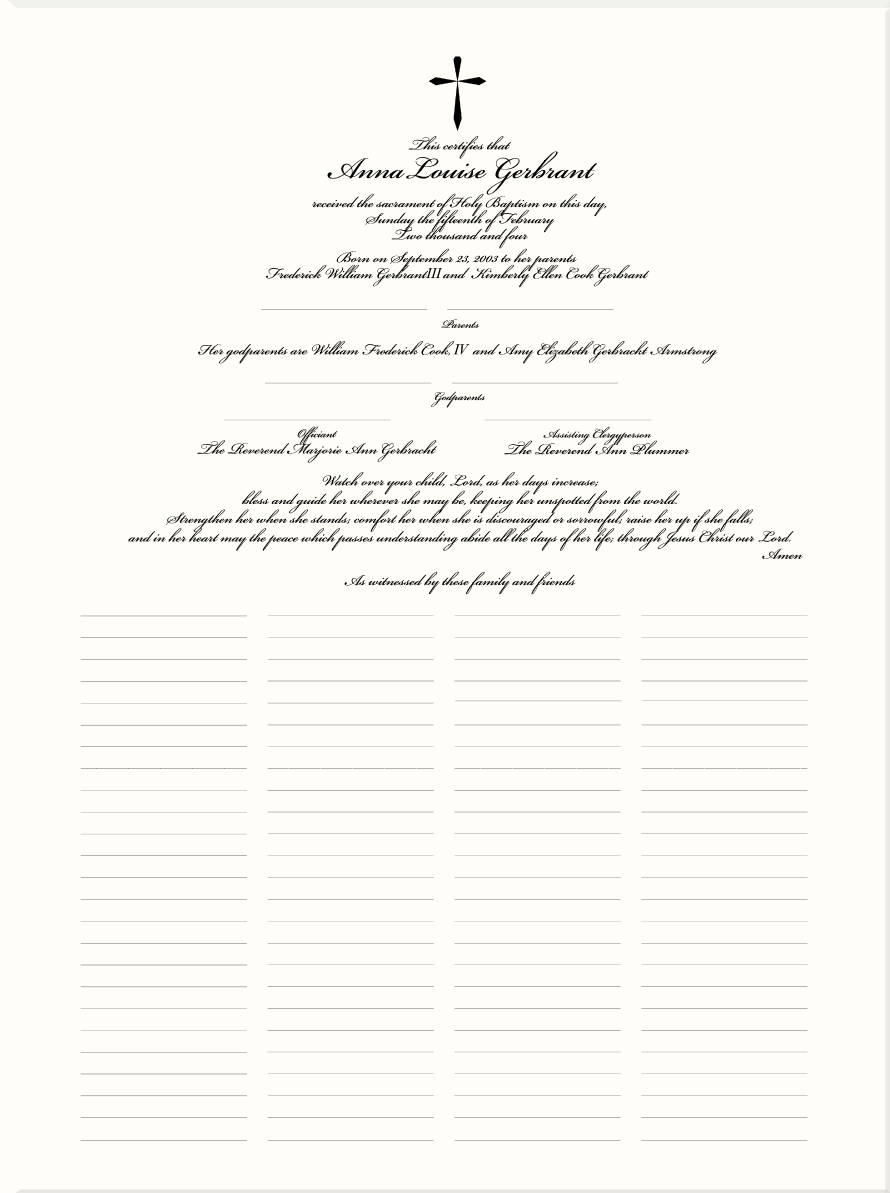 This certifies that
Anna Louise Gerbrant
received the sacrament of Holy Baptism on this day,
Sunday the fifteenth of February
Two thousand and four
Born on September 23, 2003 to her parents
Frederick William Gerbrand III and Kimberly Ellen Cook Gerbrant
Parents
Her godparents are William Frederick Cook, IV and Amy Elizabeth Gerbracht Armstrong
Godparents
Officiant Assisting Clergyperson
The Reverend Marjorie Ann Gerbracht The Reverend Ann Plummer
Watch over your child, Lord, as her days increase;
bless and guide her wherever she may be, keeping her unspotted from the world.
Strengthen her when she stands; comfort her when she is discouraged or sorrowful; raise her up if she falls;
and in her heart may the peace which passes understanding abide all the days of her life; through Jesus Christ our Lord.
Amen
As witnessed by these family and friends